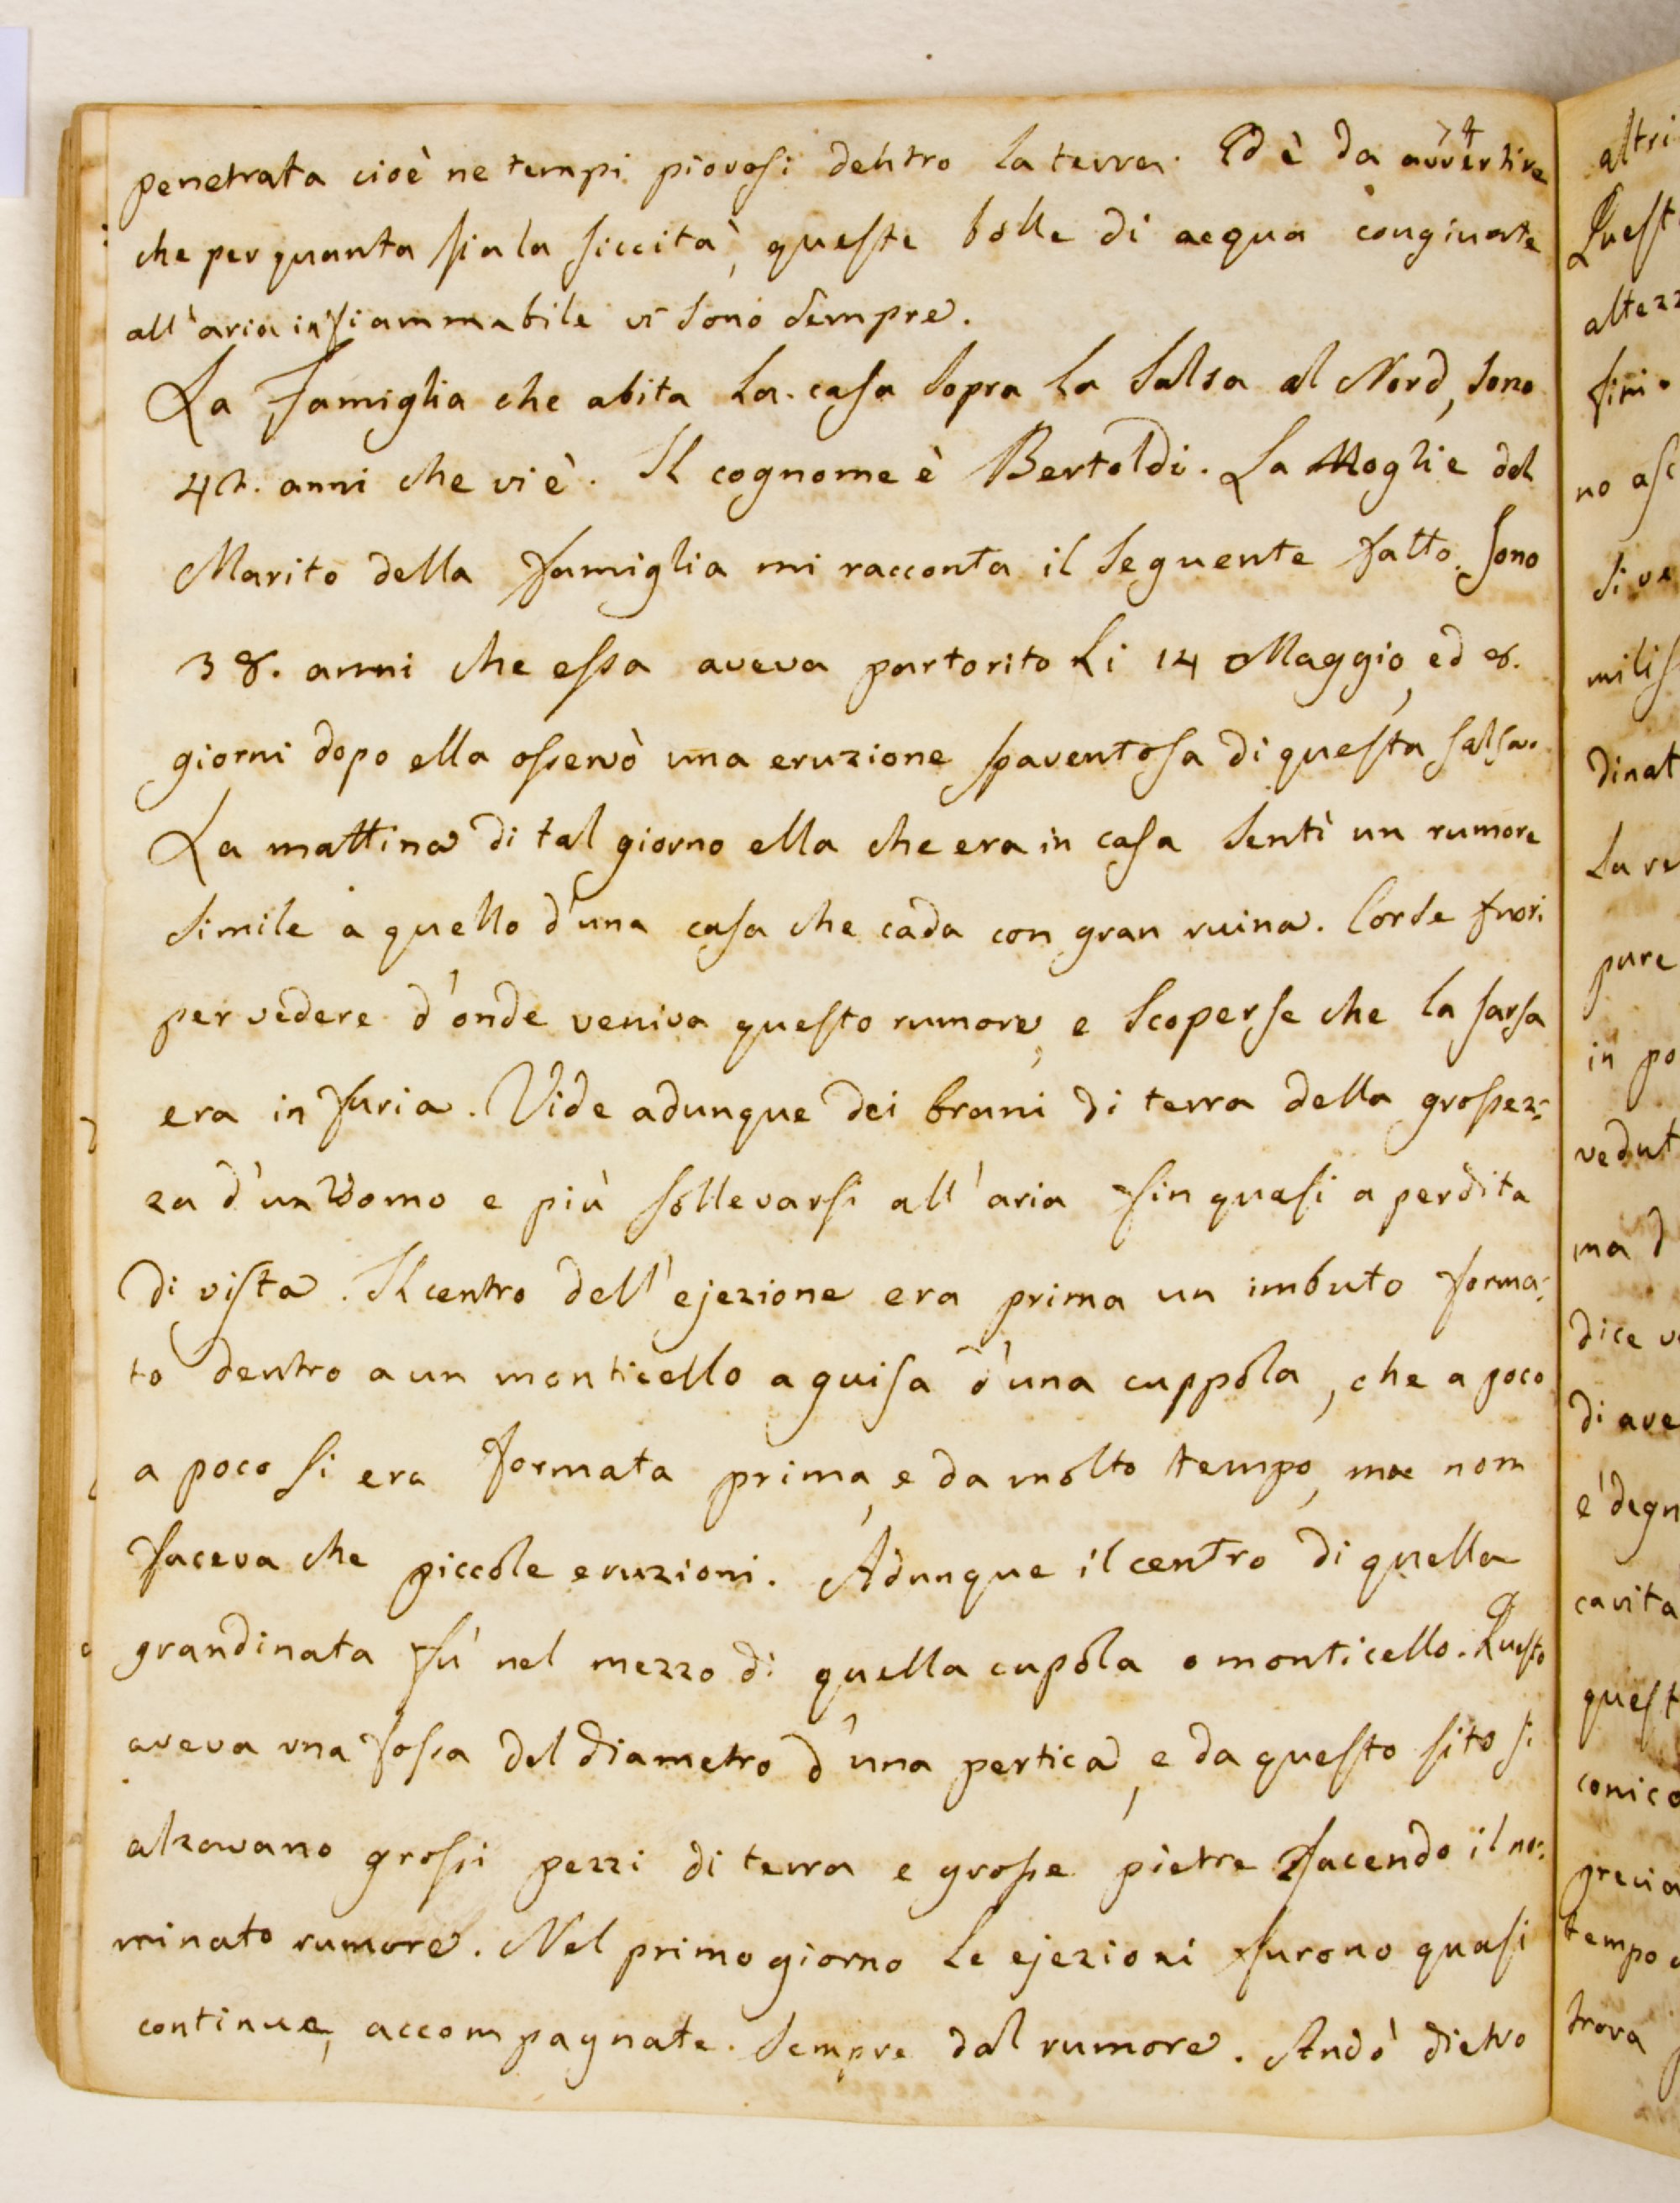 74
penetrata cioè ne tempi piovosi dentro la terra. Ed è da avvertire
che per quanta sia la siccità, queste bolle di acqua congiunte
all'aria infiammabile vi sono sempre.
La famiglia che abita la casa sopra la Salsa al Nord, sono
42. anni che vi è. Il cognome è Bertoldi. La Moglie del
Marito della famiglia mi racconta il seguente fatto. Sono
38. anni che essa aveva partorito li 14 Maggio, ed 8.
giorni dopo ella osservò una eruzione spaventosa di questa salsa.
La mattina di tal giorno ella che era in casa sentì un rumore
simile a quello d'una casa che cada con gran ruina. Corse fuori
per vedere d'onde veniva questo rumore, e scoperse che la sarsa
era in furia. Vide adunque dei brani di terra della grossez:
za d'un Uomo e più sollevarsi all'aria fin quasi a perdita
di vista. Il centro dell'ejezione era prima un imbuto forma:
to dentro a un monticello a guisa d'una cuppola, che a poco
a poco si era formata prima, e da molto tempo, ma non
faceva che piccole eruzioni. Adunque il centro di quella
grandinata fù nel mezzo di quella cupola o monticello. Questo
aveva una fossa del diametro d'una pertica, e da questo sito si
alzavano grossi pezzi di terra e grosse pietre facendo il no:
minato rumore. Nel primo giorno le ejezioni furono quasi
continue, accompagnate sempre dal rumore. Andò dietro
altri
Quest
altezz
fini
no asc
si ve
milis
dinat
la ve
pure
in po
vedut
ma d
dice v
di ave
è degn
cavita
quest
conico
grecia
tempo
trova